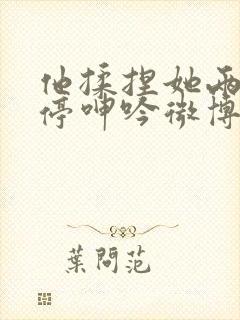 他揉捏她两
停呻吟微博
葉問范